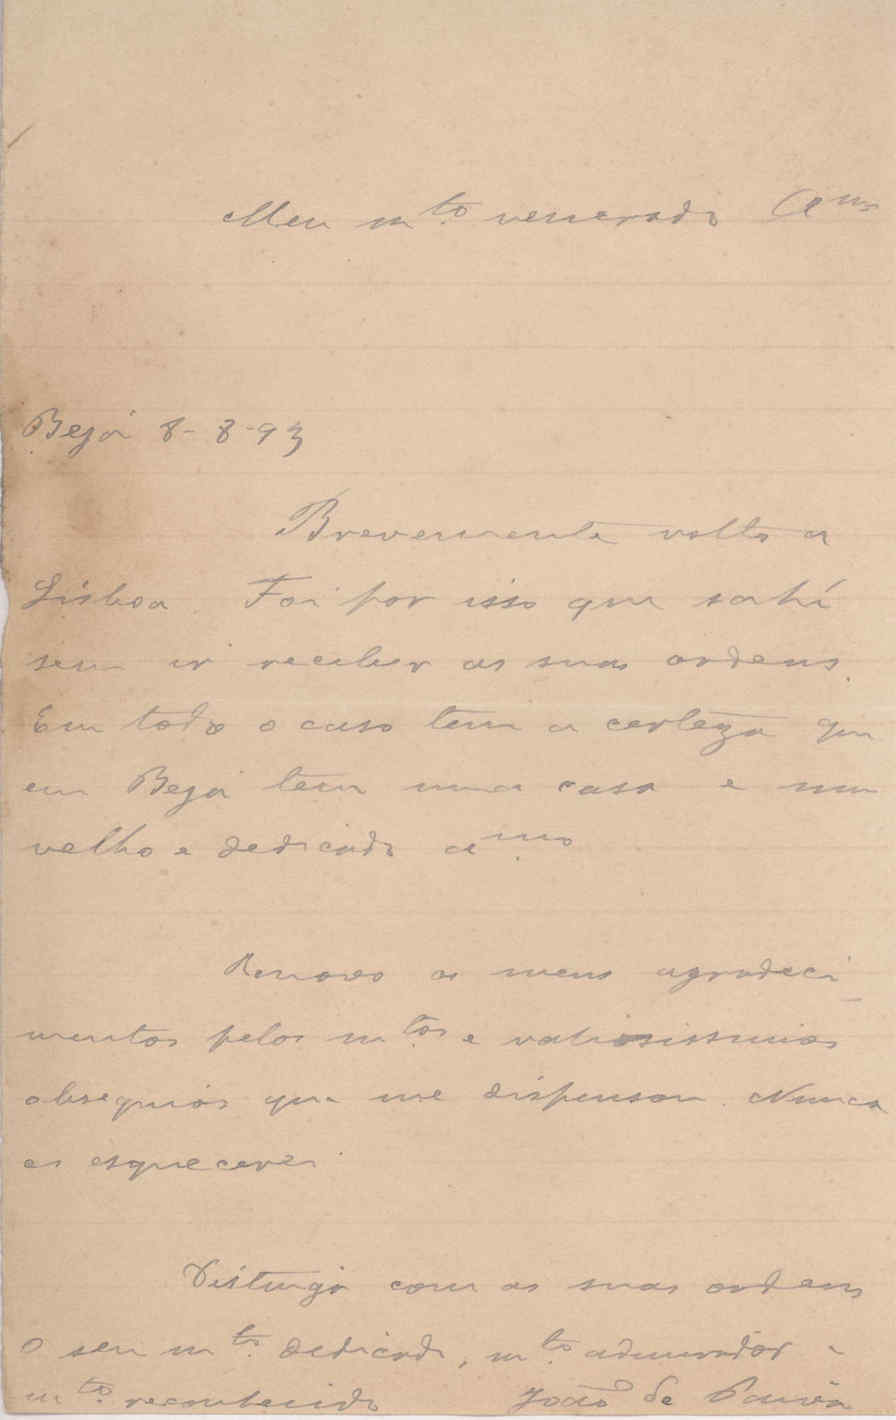 Meu m.to venerado Am.º
Beja 8-8-93
Brevemente volto a
Lisboa. Foi por isso que sahí
sem ir receber as suas ordens.
Em todo o caso tem a certeza que
em Beja tem uma casa e um
velho e dedicado am.º
Renovo os meus agradeci-
mentos pelos m.tos e valiosissimos
obsequios que me dispensou. Nunca
os esquecerei.
Distinga com as suas ordens
O seu m.to dedicado, m.to admirador e
m.to reconhecido João de Paiva